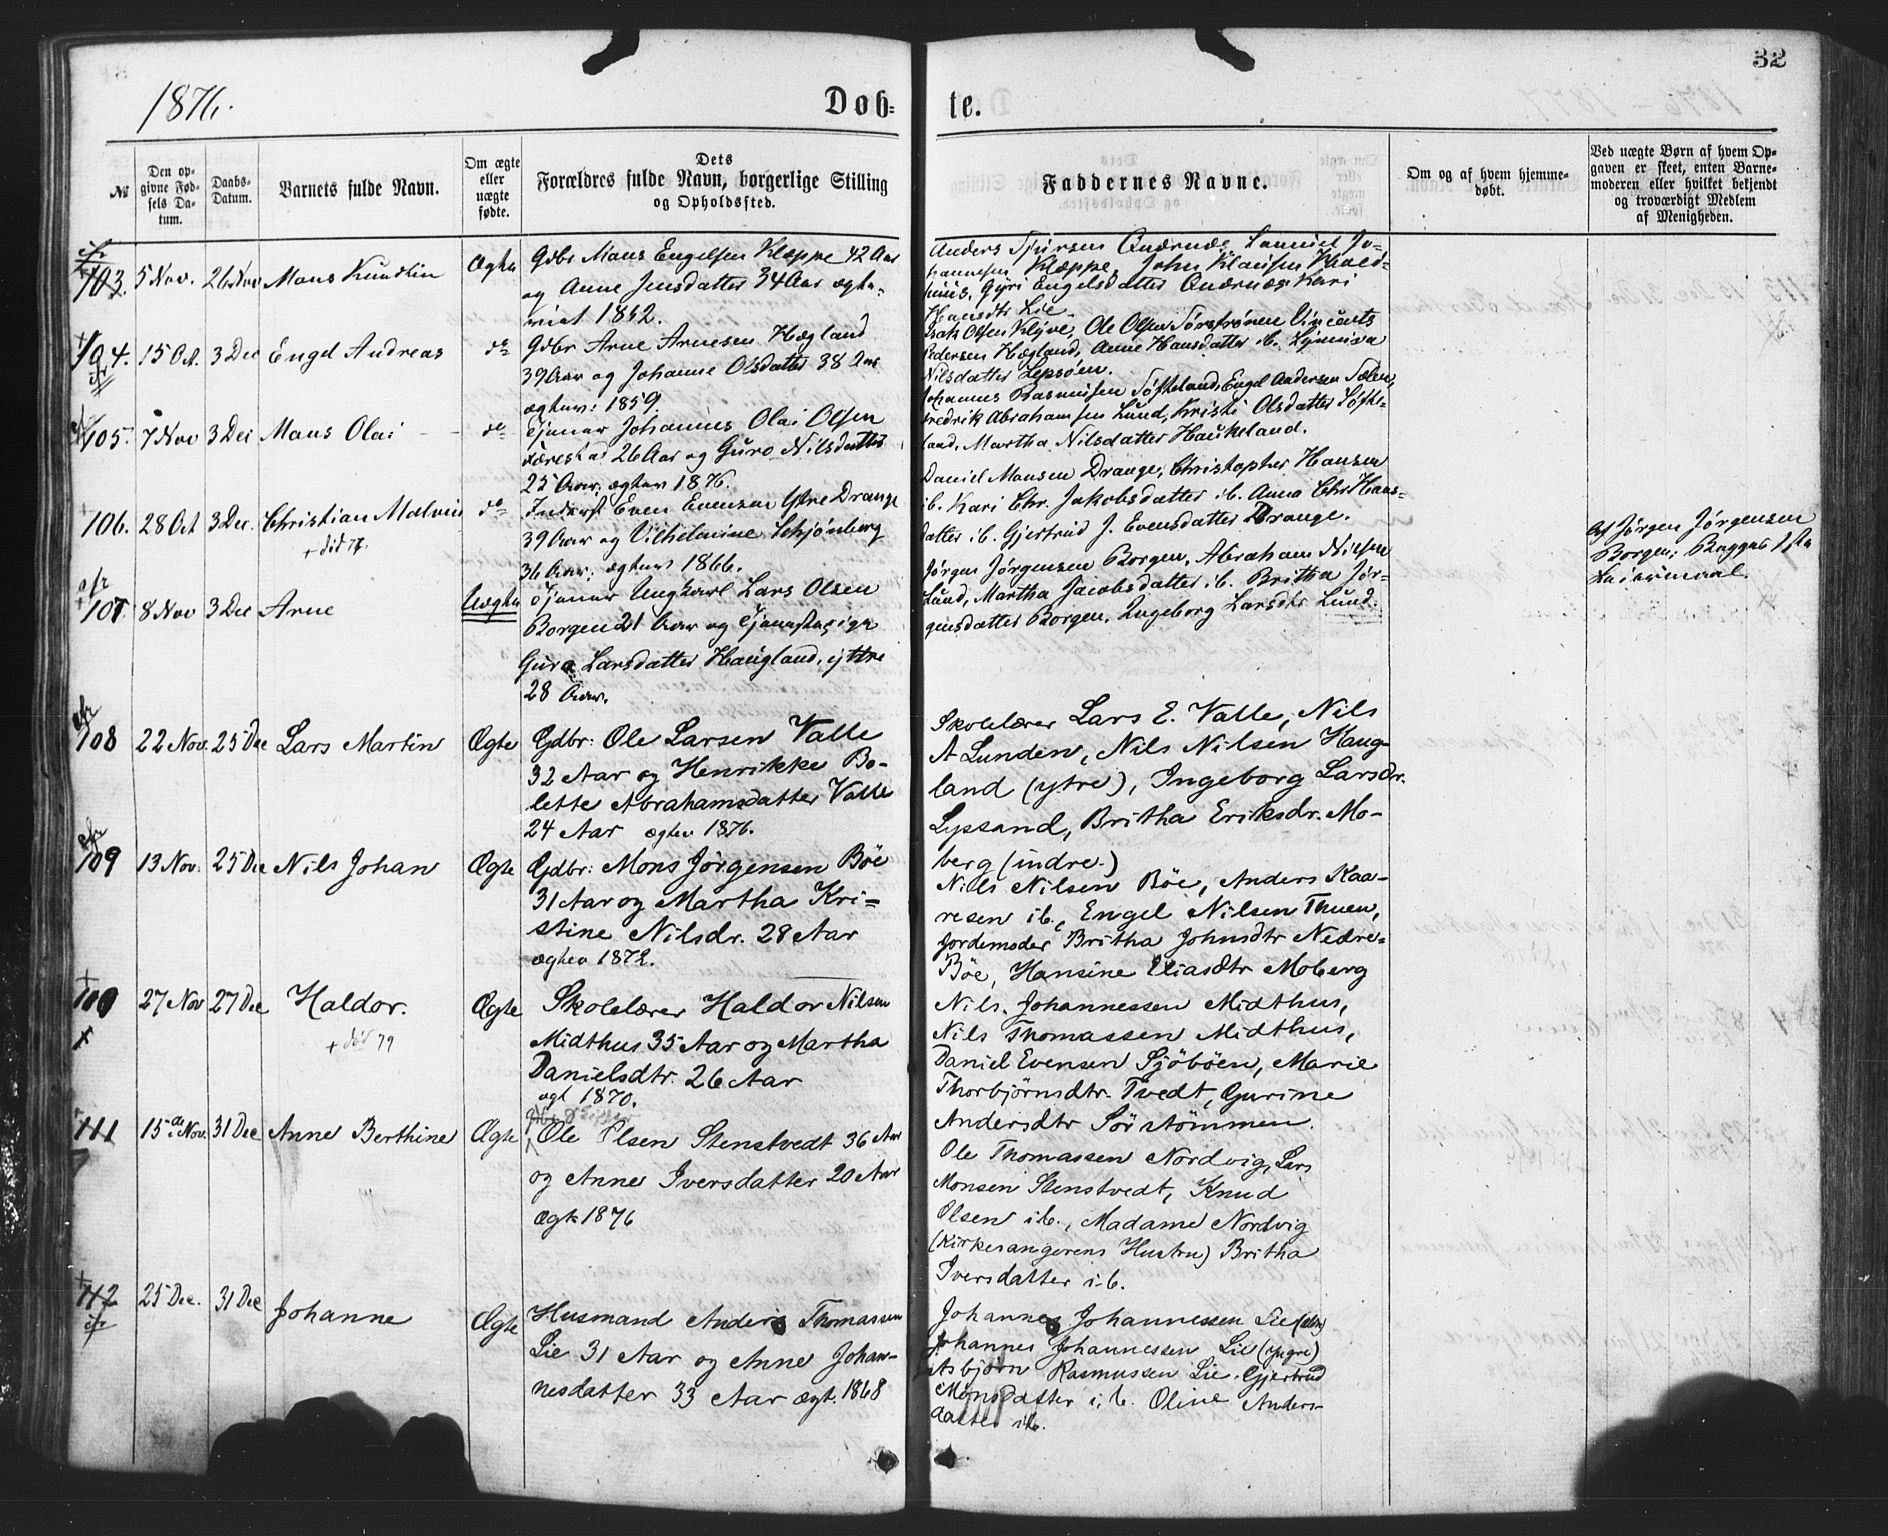 32
1876.
Døb=
te.
№
Den op=
givne Fød=
sels Da=
tum.
Daabs=
Datum.
Barnets fulde Navn.
Om ægte
eller
uægte
fødte.
Dets
Forældres fulde Navn, borgerlige Stilling
og Opholdssted.
Faddernes Navne.
Om og af hvem hjemme=
døbt.
Ved uægte Børn af hvem Op=
gaven er skeet, enten Barne=
moderen eller hvilket bekjendt
og troværdigt Medlem
af Menigheden.
103. 5 Nov. 26 Nov Mons Knudtin Ægte
Gdbr Mons Engelsen Kleppe 42 Aar
og Anne Jensdatter 34 Aar ægte-
viet 1862.
Anders Sjursen Samuel Jo-
hannesen Kleppe, John Klausen
Gjøri Engelsdatter Kari
Hansdtr Lie.
104. 15 Oct. 3 Dec Engel Andreas do
Gdbr Arne Arnesen Hægland
39 Aar og Johanne Olsdatter 38 Aar
ægtev: 1859.
Isak Olsen Klyve, Ole Olsen Sørstrønen Vincents
Pedersen Hægland, Anne Hansdatter ib.
Nilsdatter Lepsøen.
105. 7 Nov 3 Dec Mons Olai do
Tjener Johannes Olai Olsen
26 Aar og Guro Nilsdatter
25 Aar, ægtev 1876.
Johannes Rasmussen Søfteland, Engel Andersen Sælen,
Fredrik Abrahamsen Lund, Kristi Olsdatter Søfte-
land, Martha Nilsdatter Haukeland.
106. 28 Oct 3 Dec. Christian Malvin do
+ död 77.
Inderst Even Evensen Ytre Drange
39 Aar og Vilhelmine Schjønberg
36 Aar; ægtev 1866.
Daniel Monsen Drange, Christopher Hansen
ib. Kari Chr. Jakobsdatter ib. Anna Chr Hans-
datter ib. Gjertrud J. Evensdatter Drange.
107 8 Nov 3 Dec Arne Uægte
Tjener Ungkarl Lars Olsen
Borgen 21 Aar og Tjenestepige
Guro Larsdatter Haugland, yttre
28 Aar.
Jørgen Jørgensen Borgen, Abraham Nilsen
Lund, Martha Jacobsdatter ib. Britha Jør-
gensdatter Borgen, Ingeborg Larsdtr Lund.
Af Jørgen Jørgensen
Borgen; Begges 1ste
Leiermaal.
108 22 Nov. 25 Dec Lars Martin Ægte
Gdbr: Ole Larsen Valle
32 Aar og Henrikke Bo-
lette Abrahamsdatter Valle
24 Aar ægtev 1876.
Skolelærer Lars E. Valle, Nils
A Lunden, Nils Nilsen Haug-
land (ytre), Ingeborg Larsdr.
Lyssand, Britha Eriksdr. Mo-
berg (indre.)
109 13 Nov. 25 Dec Nils Johan Ægte
Gdbr: Mons Jørgensen Böe
31 Aar og Martha Kri=
stine Nilsdr. 28 Aar
ægtev 1872.
Nils Nilsen Böe, Anders Kaa-
resen ib., Engel Nilsen Thuen,
Jordemoder Britha Johnsdtr Nedre-
Böe, Hansine Eliasdtr Moberg
110 27 Nov 27 Dec Haldor. Ægte
+ död 79
Skolelærer Haldor Nilsen
Midthus 35 Aar og Martha
Danielsdtr. 26 Aar
ægt 1870.
Nils. Johannessen Midthus,
Nils Thomassen Midthus,
Daniel Evensen Sjöböen, Marie
Thorbjörnsdtr. Tvedt, Gurine
Andersdtr Sörstömmen.
111 15de Nov. 31 Dec Anne Berthine Ægte
Ole Olsen Stenstvedt 36 Aar
og Anne Iversdatter 20 Aar
Ægt 1876
Ole Thomassen Nordvig, Lars
Monsen Stenstvedt, Knud
Olsen ib., Madame Nordvig
(Kirkesangerens Hustru) Britha
Iversdatter ib.
112 25 Dec. 31 Dec Johanne Ægte
Husmand Anders Thomassen
Lie 31 Aar og Anne Johan-
nesdatter 33 Aar ægt. 1868
Johannes Johannessen Lie (eldre)
Johannes Johannessen Lie (yngre)
Asbjörn Rasmussen Lie. Gjertrud
Monsdatter ib. Oline Anders-
datter ib.